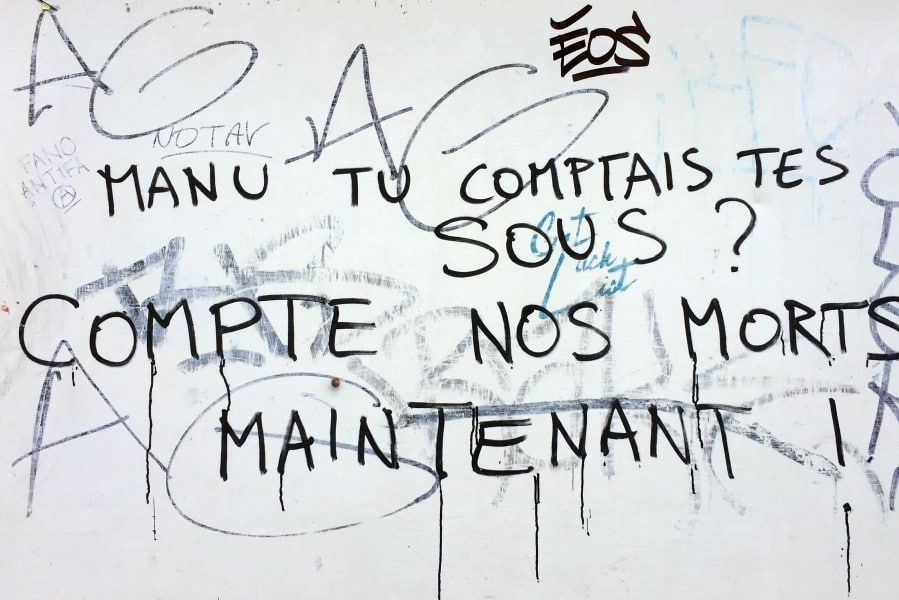 AG
ĒOS
AG
NOTAV
FANO
ANTIFA
MANU TU COMPTAIS TES
SOUS ?
COMPTE NOS MORTS
MAINTENANT !
A